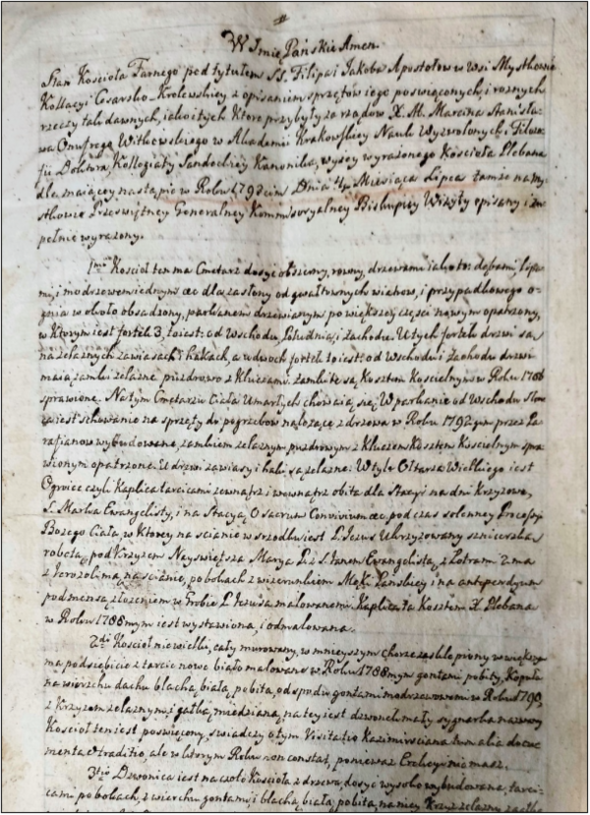 W Imię Pańskie Amen.
Stan Kościoła Farnego pod tytułem SS. Filipa i Jakoba Apostołow w Wsi Mysthowie
Kollacyi Cesarsko-Krolewskiey z opisaniem sprzętow iego poswięconych, i roznych
rzeczy tak dawnych, iako i tych ktore przybyły za rządow X. M. Marcina Stanisła-
wa Onufrego Witkowskiego w Akademii Krakowskiey Nauk Wyzwolonych, i Filozo-
fii Doktora, Kollegiaty Sandeckiey Kanonika, wyżey wyrażonego Kościoła Plebana
dla maiącey nastąpic w Roku 1793cim Dnia Miesiąca Lipca tamze na My-
Przeswiętney Generalney Kommissoryalney Biskupiey Wizyty opisany i zu-
pełnie wyrażony.
1mo Kościoł ten ma Cmętarz dosyc obszerny, rowny, drzewami iako to: dębami, lipa-
mi, i modrzewem iednym &c dla zasłony od gwałtownych wiatrow, i przypadkowego o-
gnia w około obsadzony, parkanem drzewianym po większey części nowym opatrzony,
w ktorym iest fortek 3, to iest: od Wschodu, Południa, i Zachodu. U tych fortek drzwi są
na żelaznych zawiasach i hakach, a u dwoch fortek to iest: od Wschodu i Zachodu drzwi
maią zamki żelazne, puzdrowe z kluczami zamknte są, Kosztem Kościelnym w Roku 1786
sprawione. Na tym Cmętarzu Ciała Umarłych chowaią się. W parkanie od Wschodu Słon-
ca iest schowanie na sprzęty do pogrzebow należące z drzewa w Roku 1792gim przez Pa-
rafianow wybudowane, zamkiem żelaznym puzdrowym z kluczem Kosztem Kościelnym spra-
wionym opatrzone. U drzwi zawiasy i haki są żelazne. W tyle Ołtarza Wielkiego iest
Ogroiec czyli Kaplica tarcicami zewnątrz i wewnątrz obita dla Stacyi na dni Krzyżowe,
S. Marka Ewangelisty, i na Stacyą O sacrum Convivium &c podczas solenney Processyi
Bożego Ciała, w ktorey na scianie w srzodku iest P. Jezus Ukrzyżowany snicerską
robotą, pod Krzyżem Nayswiętsza Marya P. i S. Janem Ewangelistą, z Łotrami 2. ma
z Ierozolimą na scianie, po bokach z wizerunkiem Męki Pańskiey i na antipendyum
pod mensą złożeniem w Grobie P. Jezusa malowanemi. Kaplica ta Kosztem X. Plebana
w Roku 1788mym iest wystawiona, i odmalowana.
2do Kościoł niewielki, cały murowany, w mnieyszym chorze zasklepiony w większym
ma podsiębicie z tarcic nowe biało malowane w Roku 1788mym gontami pobity, Kopuła
na wierzchu dachu blachą białą pobita, od spodu gontami modrzewowemi w Roku 1790,
z Krzyżem żelaznym, i gałką miedzianą, na tey iest dzwonek mały sygnarka nazwany
Kościoł ten iest poswięcony, swiadczy o tym Visitatio Kazimirsciana tum alia docu-
menta & traditio, ale w ktorym Roku non constat, ponieważ Erekcyi nie masz.
3tio Dzwonica iest na czole Kościoła z drzewa, dosyc wysoko wybudowana, tarci-
cami po bokach, z wierzchu gontami, i blachą białą pobita, na niey Krzyż żelazny